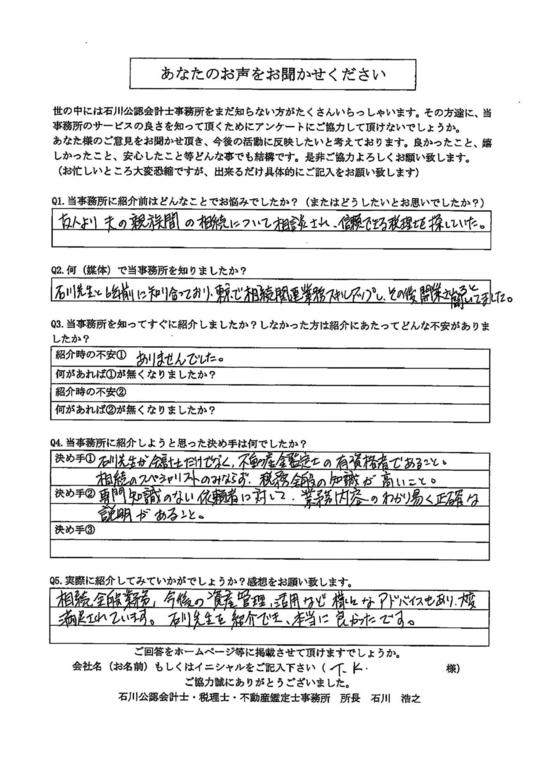 あなたのお声をお聞かせください
世の中には石川公認会計士事務所をまだ知らない方がたくさんいらっしゃいます。その方達に、当
事務所のサービスの良さを知って頂くためにアンケートにご協力して頂けないでしょうか。
あなた様のご意見をお聞かせ頂き、今後の活動に反映したいと考えております。良かったこと、嬉
しかったこと、安心したこと等どんな事でも結構です。是非ご協力よろしくお願い致します。
（お忙しいところ大変恐縮ですが、出来るだけ具体的にご記入をお願い致します）
Q1.当事務所に紹介前はどんなことでお悩みでしたか？（またはどうしたいとお思いでしたか？）
友人より 夫の親族間の相続について相談され、信頼できる税理士を探していた。
Q2.何（媒体）で当事務所を知りましたか？
石川先生と6年前に知り合っており、東京で相続関連業務スキルアップし、その後開業されると聞いてました。
Q3.当事務所を知ってすぐに紹介しましたか？しなかった方は紹介にあたってどんな不安がありま
したか？
紹介時の不安① ありませんでした。
何があれば①が無くなりましたか？
紹介時の不安②
何があれば②が無くなりましたか？
Q4.当事務所に紹介しようと思った決め手は何でしたか？
決め手① 石川先生が会計士だけでなく、不動産鑑定士の有資格者であること。
相続のスペシャリストのみならず、税務全般の知識が高いこと。
決め手② 専門知識のない依頼者に対して、業務内容のわかり易く正確な
説明があること。
決め手③
Q5.実際に紹介してみていかがでしょうか？感想をお願い致します。
相続全般業務、今後の資産管理、活用など様々なアドバイスもあり、大変
満足されています。石川先生を紹介でき、本当に良かったです。
ご回答をホームページ等に掲載させて頂けますでしょうか。
会社名（お名前）もしくはイニシャルをご記入下さい（ T.K. 様）
ご協力誠にありがとうございました。
石川公認会計士・税理士・不動産鑑定士事務所 所長 石川 浩之